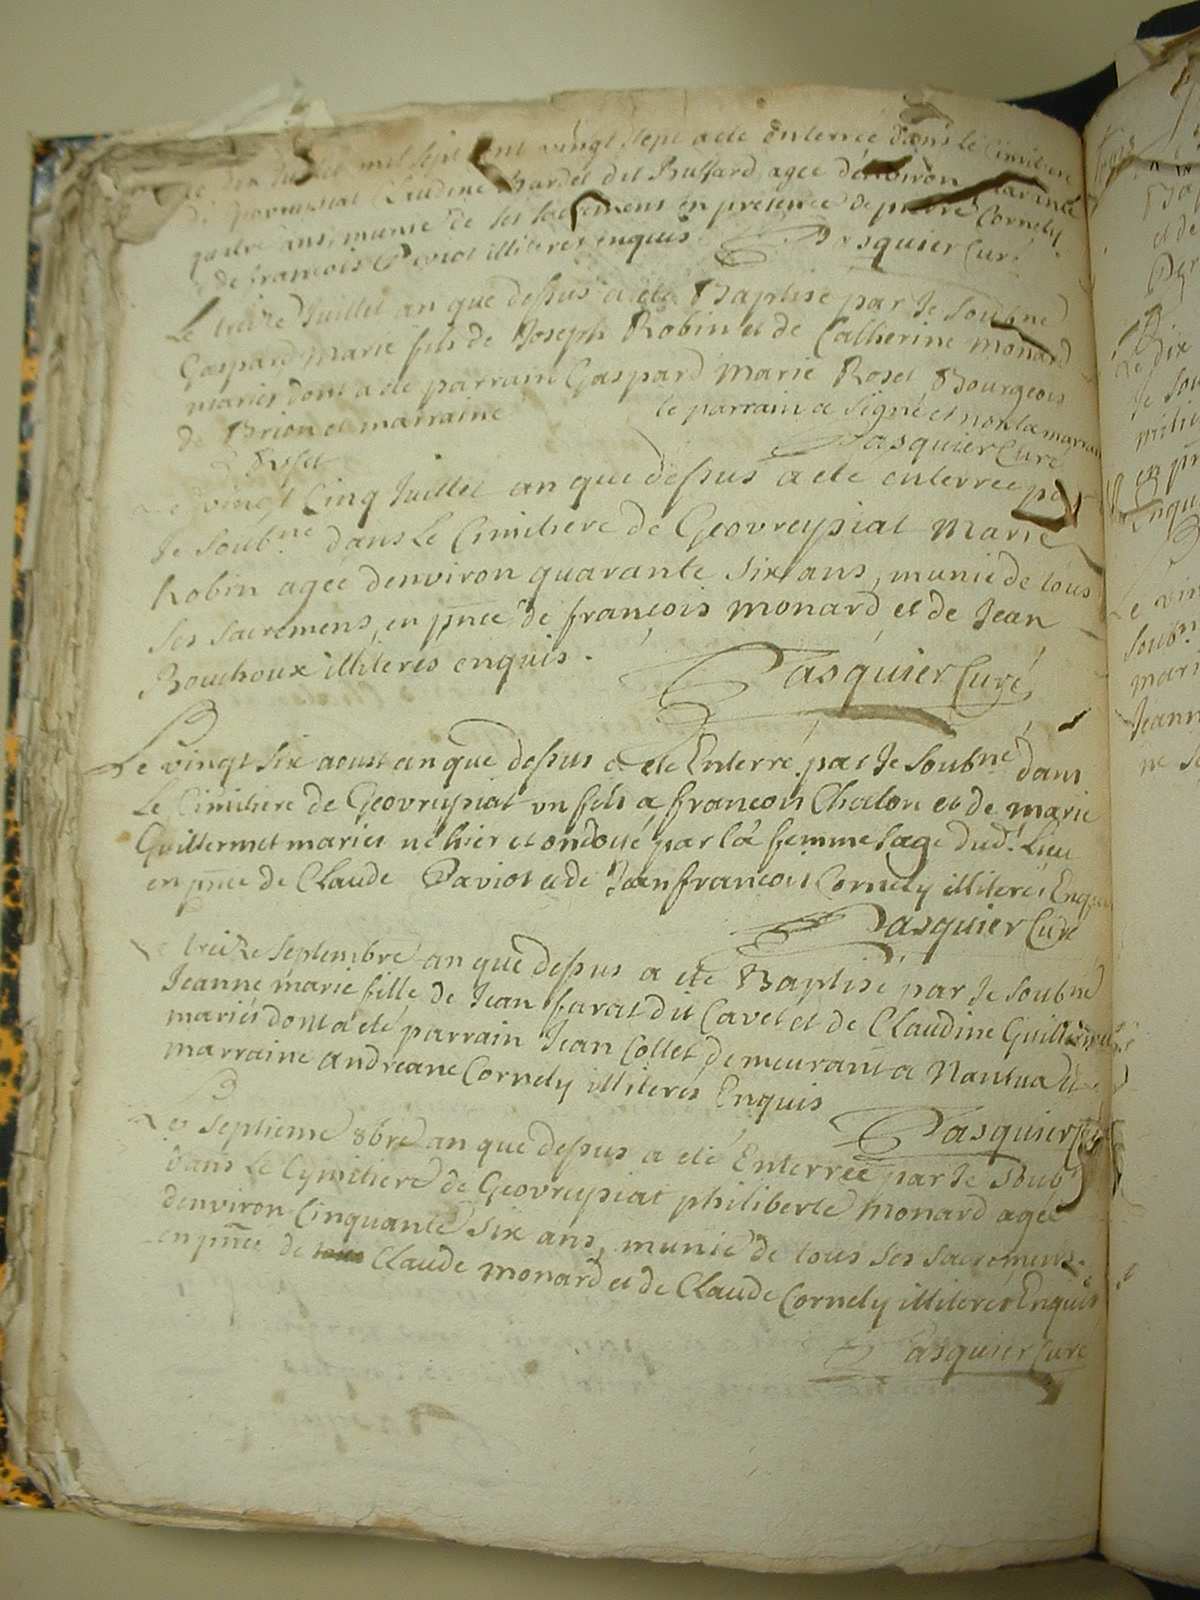 dix Juillet mil sept cent vingt sept a eté Enterrée dans le Cimitiere
Claudine Bardet dit Bussard, agée d'environ quarante
quatre ans, munie de ses sacremens en presence de pierre Cornely
& de françois Paviot illiteres enquis Pasquier Curé
Le treize Juillet an que dessus a eté Baptisé par Je Soubné
Gaspard Marie fils de Joseph Robin et de Catherine monard
mariés dont a eté parrain Gaspard Marie Roset Bourgeois
de Brion et marraine le parrain a signé et non la marraine
Roset Pasquier Curé
Le vingt Cinq Juillet an que dessus a eté enterrée par
Je Soubné dans Le Cimitiere de Geovreyssiat Marie
Robin agée denviron quarante six ans, munie de tous
Ses sacremens, en pnce de françois monard et de Jean
Bouchoux illiterés enquis. Pasquier Curé
Le vingt six aoust an que dessus a eté Enterré par Je Soubné dans
Le Cimitiere de Geovreyssiat un fils a francois Chalon et de marie
Guillermet mariés né hier et ondoié par la femme sage dud. Lieu
en pnce de Claude Paviot et de Jean francois Cornely illiterés Enquis
Pasquier Curé
Le treize Septembre an que dessus a eté Baptisé par Je Soubné
Jeanne marie fille de Jean farat dit Cavet et de Claudine Guillermet
mariés dont a eté parrain Jean Collet demeurant a Nantua et
marraine andreane Cornely illiterés Enquis
Pasquier Curé
Les Septieme 8bre an que dessus a eté Enterrée par Je Soub
dans Le Cymitiere de Geovreyssiat philiberte monard agée
denviron Cinquante six ans, munie de tous ses sacremens.
en pnce de Claude monard et de Claude Cornely illiterés Enquis
Pasquier Curé